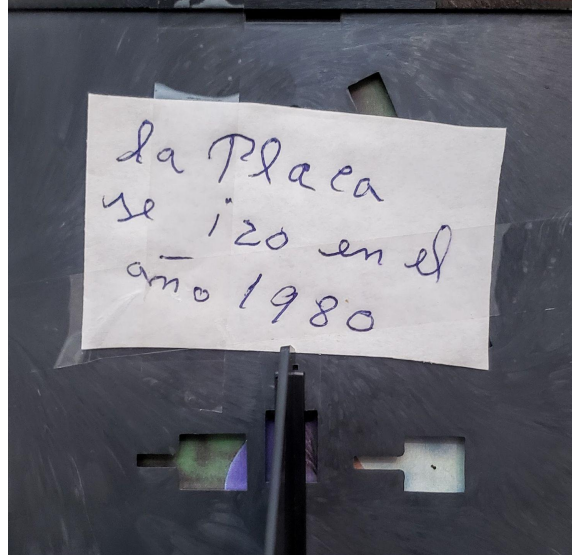 La Placa
se izo en el
año 1980